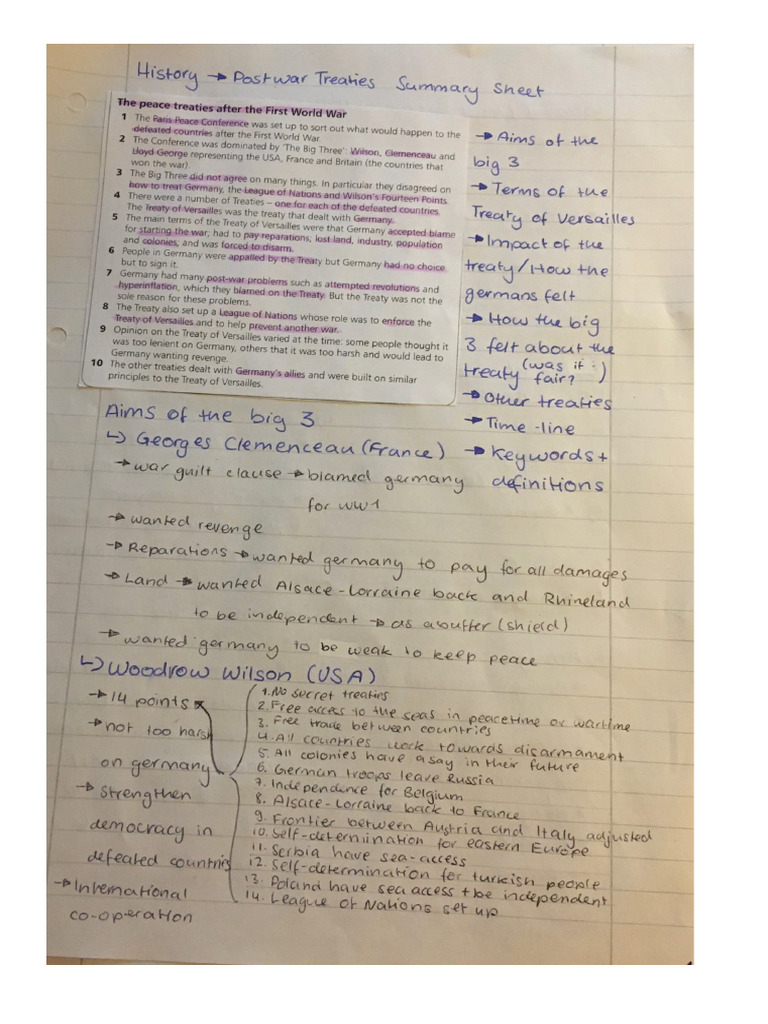 History → Postwar Treaties Summary Sheet
The peace treaties after the First World War
1 The Paris Peace Conference was set up to sort out what would happen to the
defeated countries after the First World War.
2 The Conference was dominated by 'The Big Three': Wilson, Clemenceau and
Lloyd George representing the USA, France and Britain (the countries that
won the war).
3 The Big Three did not agree on many things. In particular they disagreed on
how to treat Germany, the League of Nations and Wilson's Fourteen Points.
4 There were a number of Treaties – one for each of the defeated countries.
The Treaty of Versailles was the treaty that dealt with Germany.
5 The main terms of the Treaty of Versailles were that Germany accepted blame
for starting the war; had to pay reparations; lost land, industry, population
and colonies; and was forced to disarm.
6 People in Germany were appalled by the Treaty but Germany had no choice
but to sign it.
7 Germany had many post-war problems such as attempted revolutions and
hyperinflation, which they blamed on the Treaty. But the Treaty was not the
sole reason for these problems.
8 The Treaty also set up a League of Nations whose role was to enforce the
Treaty of Versailles and to help prevent another war.
9 Opinion on the Treaty of Versailles varied at the time: some people thought it
was too lenient on Germany, others that it was too harsh and would lead to
Germany wanting revenge.
10 The other treaties dealt with Germany's allies and were built on similar
principles to the Treaty of Versailles.
→ Aims of the
big 3
→ Terms of the
Treaty of Versailles
→ Impact of the
treaty/How the
germans felt
→ How the big
3 felt about the
treaty (was it fair?)
→ Other treaties
→ Time-line
→ Keywords +
definitions
Aims of the big 3
↳ Georges Clemenceau (France)
→ war guilt clause → blamed germany
for WW1
→ wanted revenge
→ Reparations → wanted germany to pay for all damages
→ Land → wanted Alsace-Lorraine back and Rhineland
to be independent → as a buffer (shield)
→ wanted germany to be weak to keep peace
↳ Woodrow Wilson (USA)
→ 14 points
→ not too harsh
on germany
→ Strengthen
democracy in
defeated countries
→ International
co-operation
1. No secret treaties
2. Free access to the seas in peacetime or wartime
3. Free trade between countries
4. All countries work towards disarmament
5. All colonies have a say in their future
6. German troops leave Russia
7. Independence for Belgium
8. Alsace-Lorraine back to France
9. Frontier between Austria and Italy adjusted
10. Self-determination for eastern Europe
11. Serbia have sea-access
12. Self-determination for turkish people
13. Poland have sea access + be independent
14. League of Nations set up